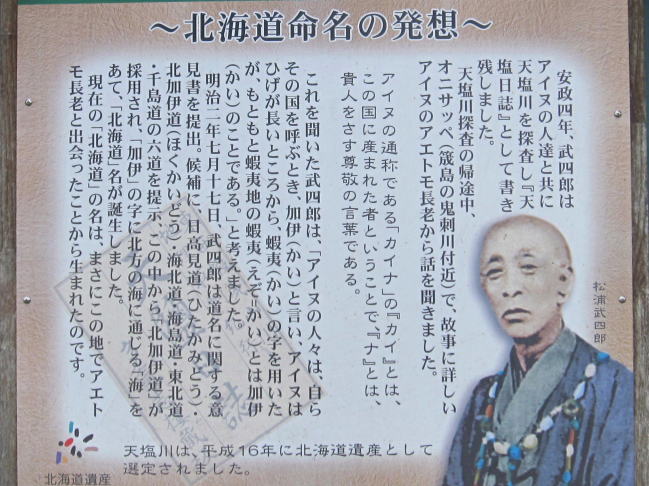 ～北海道命名の発想～
安政四年、武四郎は
アイヌの人達と共に
天塩川を探査し『天
塩日誌』として書き
残しました。
天塩川探査の帰途中、
オニサッペ(筬島の鬼刺川付近)で、故事に詳しい
アイヌのアエトモ長老から話を聞きました。
アイヌの通称である「カイナ」の『カイ』とは、
この国に産まれた者ということで『ナ』とは、
貴人をさす尊敬の言葉である。
これを聞いた武四郎は、「アイヌの人々は、自ら
その国を呼ぶとき、加伊(かい)と言い、アイヌは
ひげが長いところから、蝦夷(かい)の字を用いた
が、もともと蝦夷地の蝦夷(えぞ・かい)とは加伊
(かい)のことである。」と考えました。
明治二年七月十七日、武四郎は道名に関する意
見書を提出。候補に、日高見道(ひたかみどう)・
北加伊道(ほくかいどう)・海北道・海島道・東北道
・千島道の六道を提示、この中から「北加伊道」が
採用され、「加伊」の字に北方の海に通じる「海」を
あて、「北海道」名が誕生しました。
現在の「北海道」の名は、まさにこの地でアエト
モ長老と出会ったことから生まれたのです。
松浦武四郎
天塩川は、平成16年に北海道遺産として
選定されました。
北海道遺産